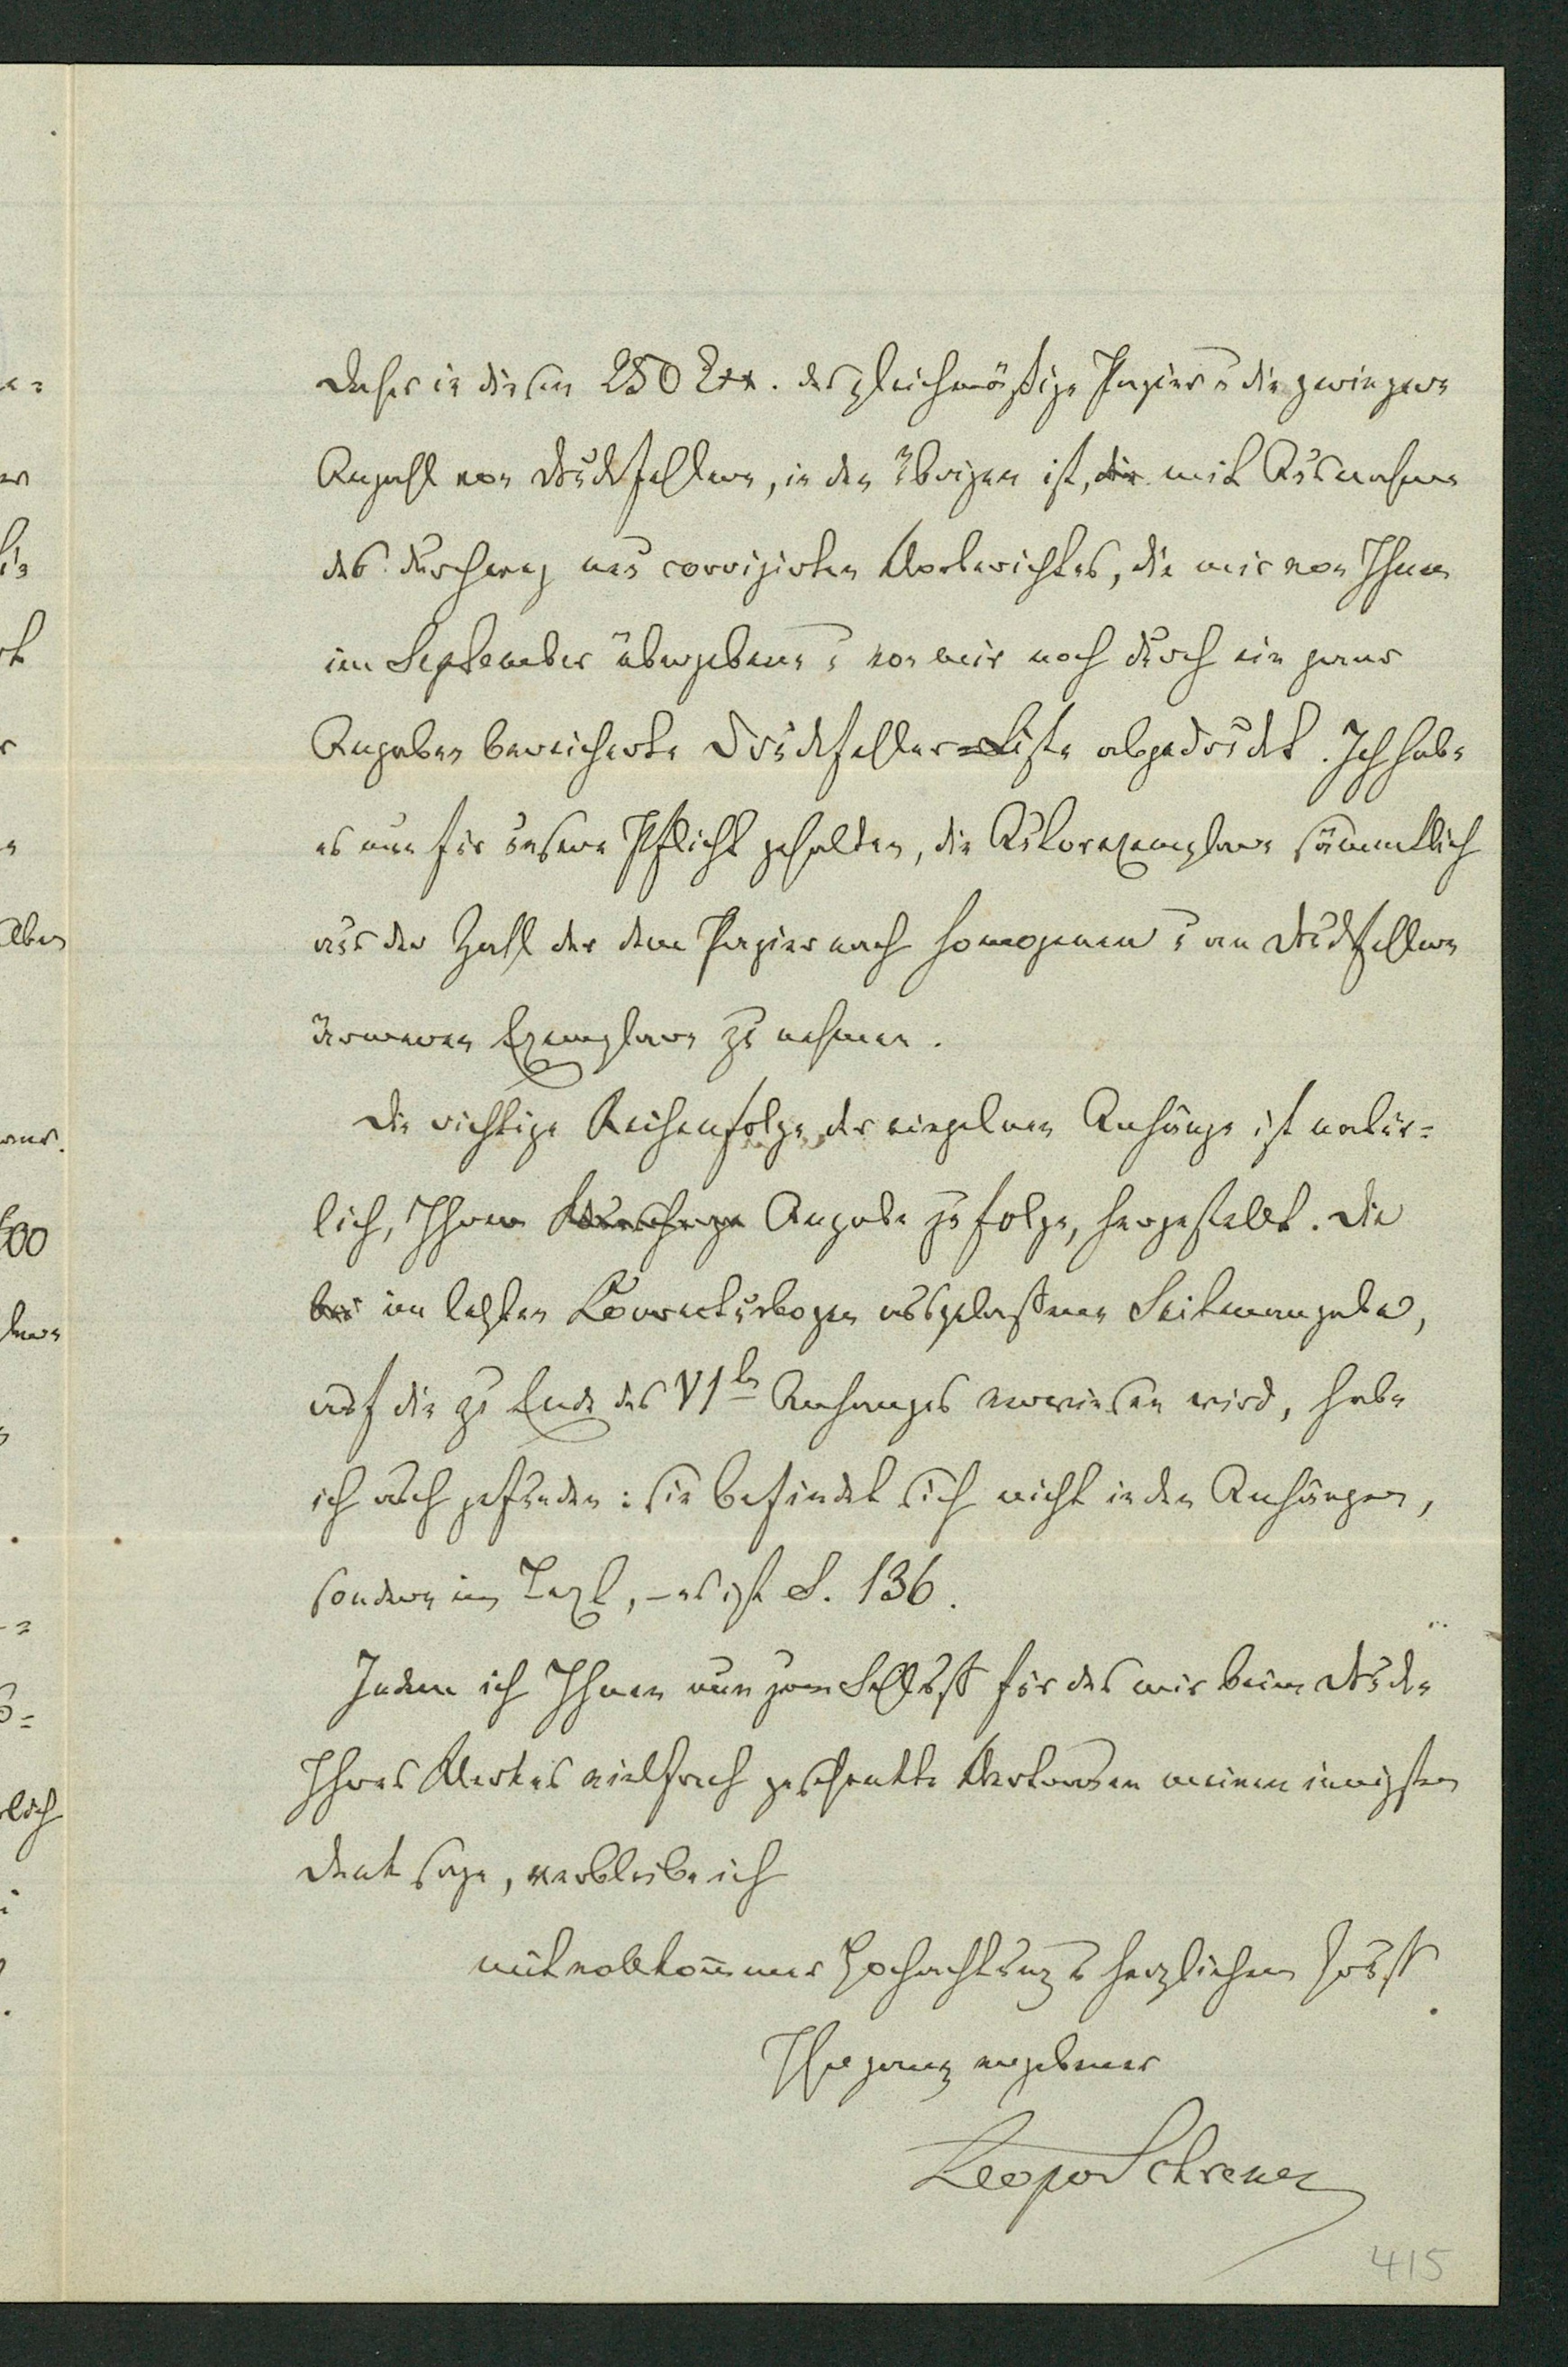 Daher in diesen 250 Exx. das gleichmäßige Papier u die geringere
Anzahl von Druckfehlern, in den übrigen ist, die mit Ausnahme
des durchweg neu corrigirten Vorberichtes, die mir von Ihnen
im September übergebene u von mir noch durch ein paar
Angaben bereicherte Druckfehler=Liste abgedruckt. Ich habe
es nun für unsere Pflicht gehalten, die Autorexemplare sämmtlich
aus der Zahl der dem Papier nach homogenen u an Druckfehlern
ärmeren Exemplare zu nehmen.
Die richtige Reihenfolge der einzelnen Anhänge ist natür=
lich, Ihrer Angabe zu folge, hergestellt. Die
bei im letzten Correcturbogen ausgelassene Seitenangabe,
auf die zu Ende des VI<sup>ten</sup> Anhanges verwiesen wird, habe
ich auch gefunden: sie befindet sich nicht in den Anhängen,
sondern im Text, – es ist S. 136.
Indem ich Ihnen nun zum Schluß für das mir beim Drucke
Ihres Werkes vielfach geschenkte Vertrauen meinen innigsten
Dank sage, verbleibe ich
mit vollkom̄ner Hochachtung u herzlichem Gruß
Ihr ganz ergebener
Leopold Schrener
415